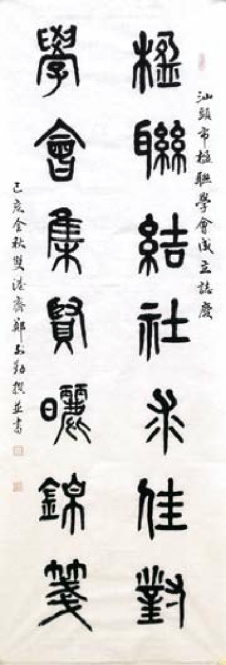 汕頭市楹聯學會成立誌慶
楹聯結社求佳對
學會集賢曬錦箋
己亥金秋雙港齋鄭 勤撰並書